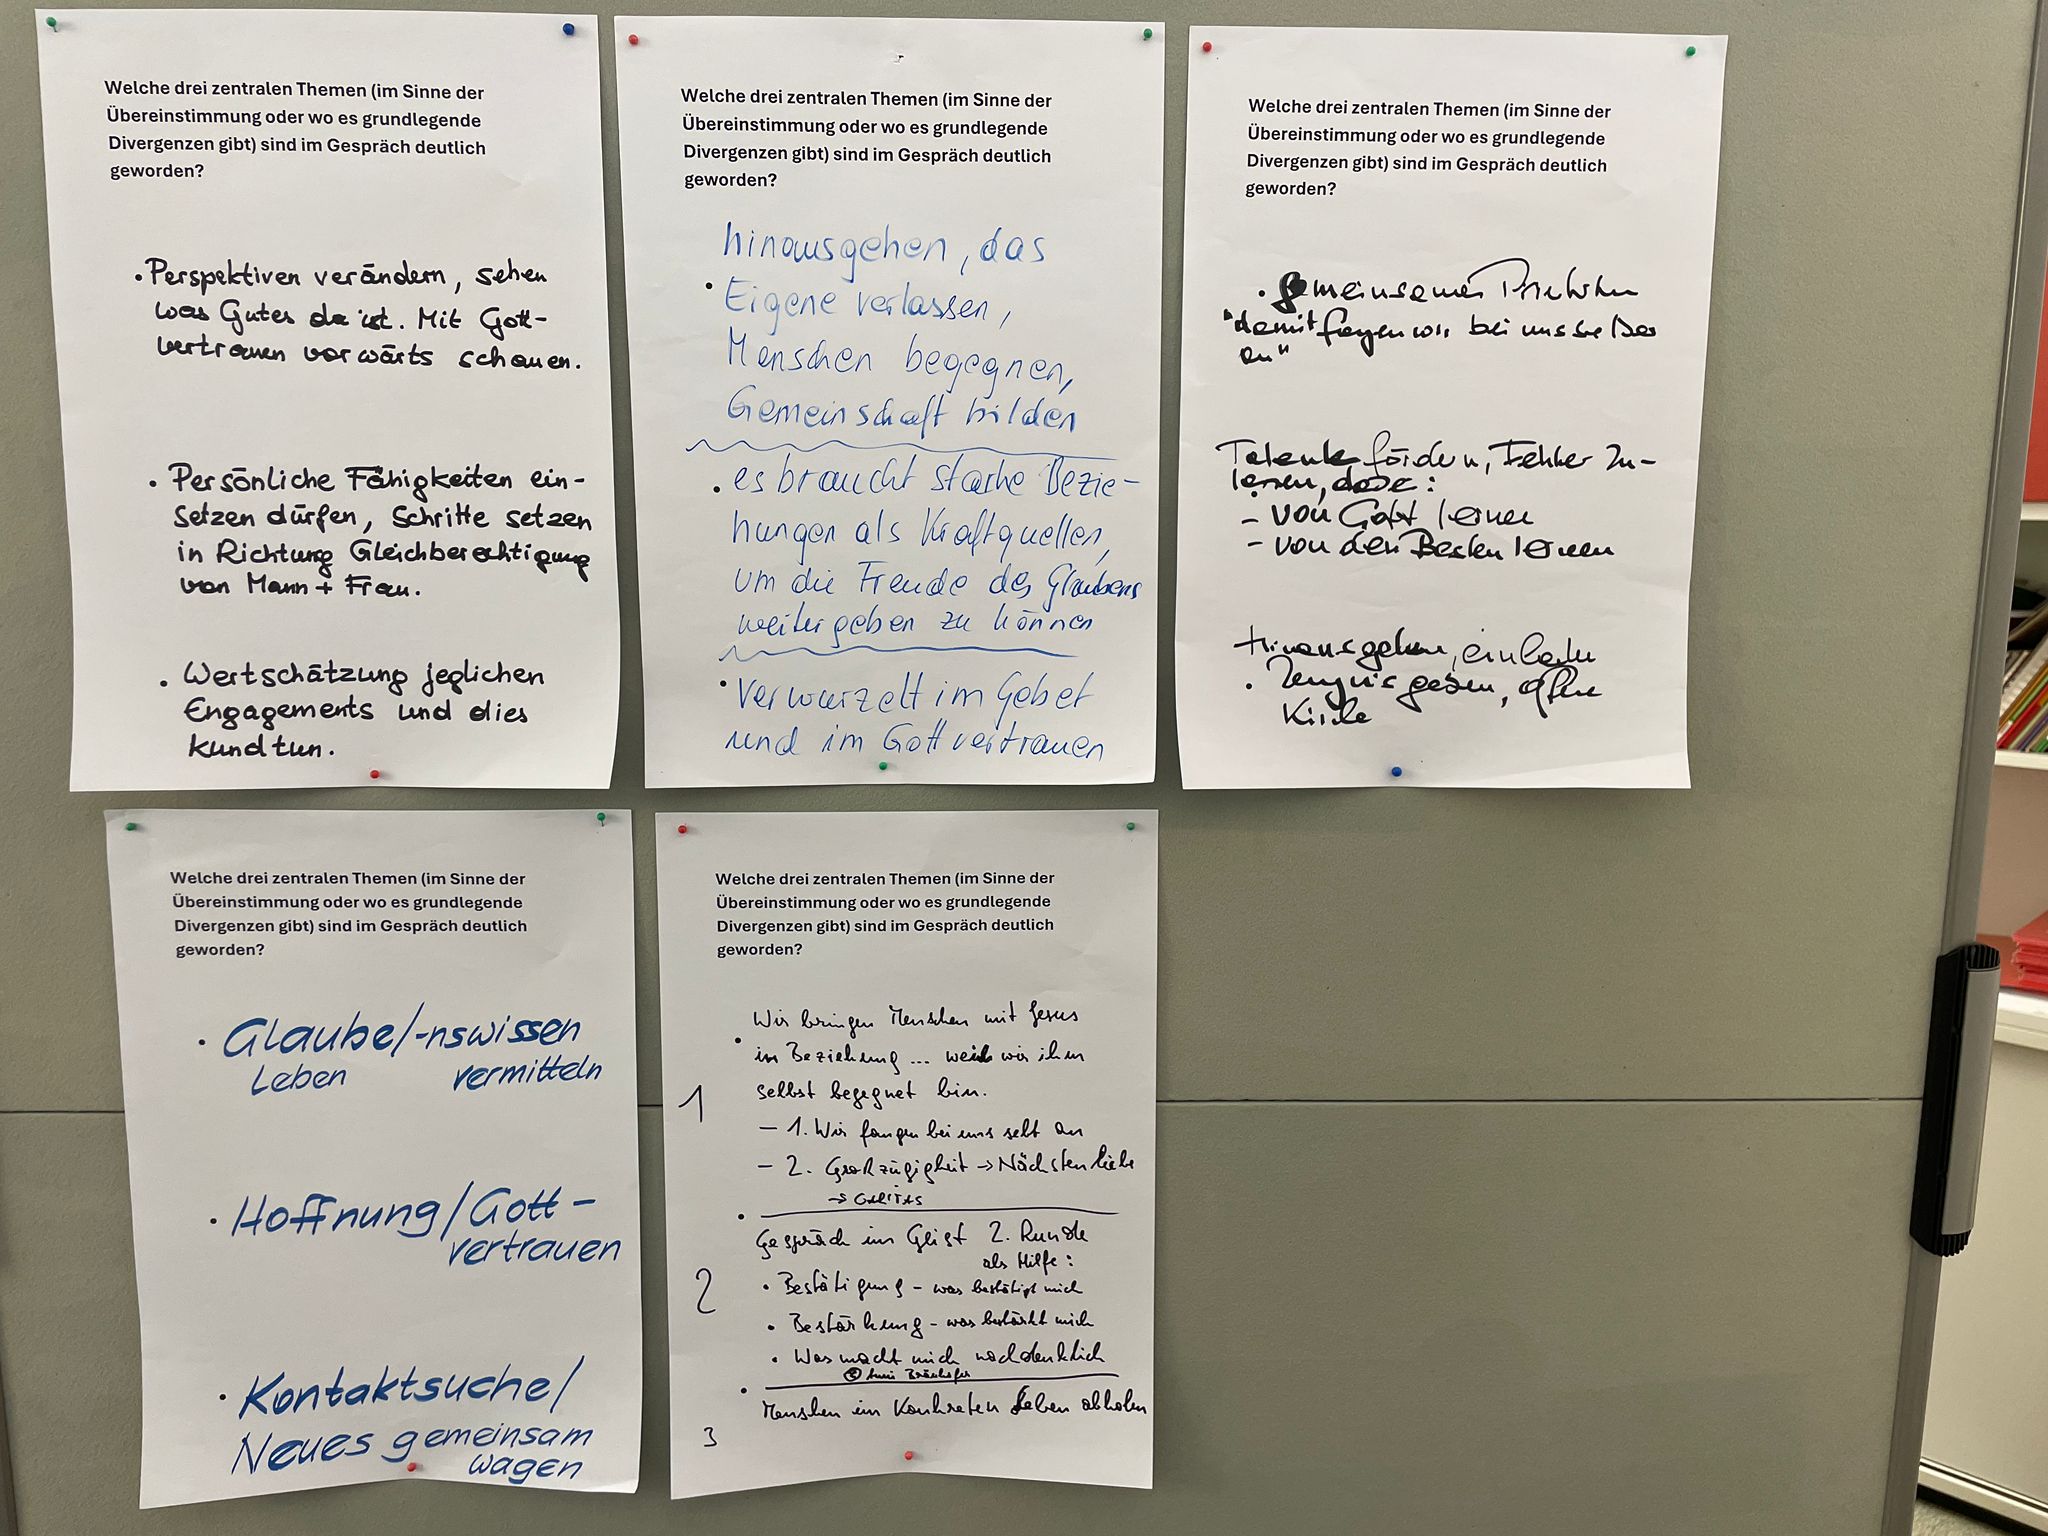 Welche drei zentralen Themen (im Sinne der
Übereinstimmung oder wo es grundlegende
Divergenzen gibt) sind im Gespräch deutlich
geworden?
• Perspektiven verändern, sehen
was Gutes da ist. Mit Gott-
vertrauen vorwärts schauen.
• Persönliche Fähigkeiten ein-
setzen dürfen, Schritte setzen
in Richtung Gleichberechtigung
von Mann + Frau.
• Wertschätzung jeglichen
Engagements und dies
kundtun.
Welche drei zentralen Themen (im Sinne der
Übereinstimmung oder wo es grundlegende
Divergenzen gibt) sind im Gespräch deutlich
geworden?
hinausgehen, das
• Eigene verlassen,
Menschen begegnen,
Gemeinschaft bilden
• es braucht starke Bezie-
hungen als Kraftquellen,
um die Freude des Glaubens
weitergeben zu können
• verwurzelt im Gebet
und im Gottvertrauen
Welche drei zentralen Themen (im Sinne der
Übereinstimmung oder wo es grundlegende
Divergenzen gibt) sind im Gespräch deutlich
geworden?
• gemeinsames
"damit fangen wir bei uns selber
an"
Talente fördern, Fehler zu-
lassen, dabei:
- von Gott lernen
- von den Besten lernen
Hinausgehen, einladen
• Zeugnis geben, offene
Kirche
Welche drei zentralen Themen (im Sinne der
Übereinstimmung oder wo es grundlegende
Divergenzen gibt) sind im Gespräch deutlich
geworden?
• Glaube/-nswissen
Leben vermitteln
• Hoffnung/Gott-
vertrauen
• Kontaktsuche/
Neues gemeinsam
wagen
Welche drei zentralen Themen (im Sinne der
Übereinstimmung oder wo es grundlegende
Divergenzen gibt) sind im Gespräch deutlich
geworden?
Wir bringen Menschen mit Jesus
• in Beziehung ... weil wir ihm
selbst begegnet bin.
1
- 1. Wir fangen bei uns selbt an
- 2. Großzügigkeit → Nächstenliebe
→ CARITAS
•
Gespräch im Geist 2. Runde
als Hilfe:
2
• Bestätigung - was bestätigt mich
• Bestärkung - was bestärkt mich
• Was macht mich nachdenklich
•
Menschen im Konkreten Leben abholen
3